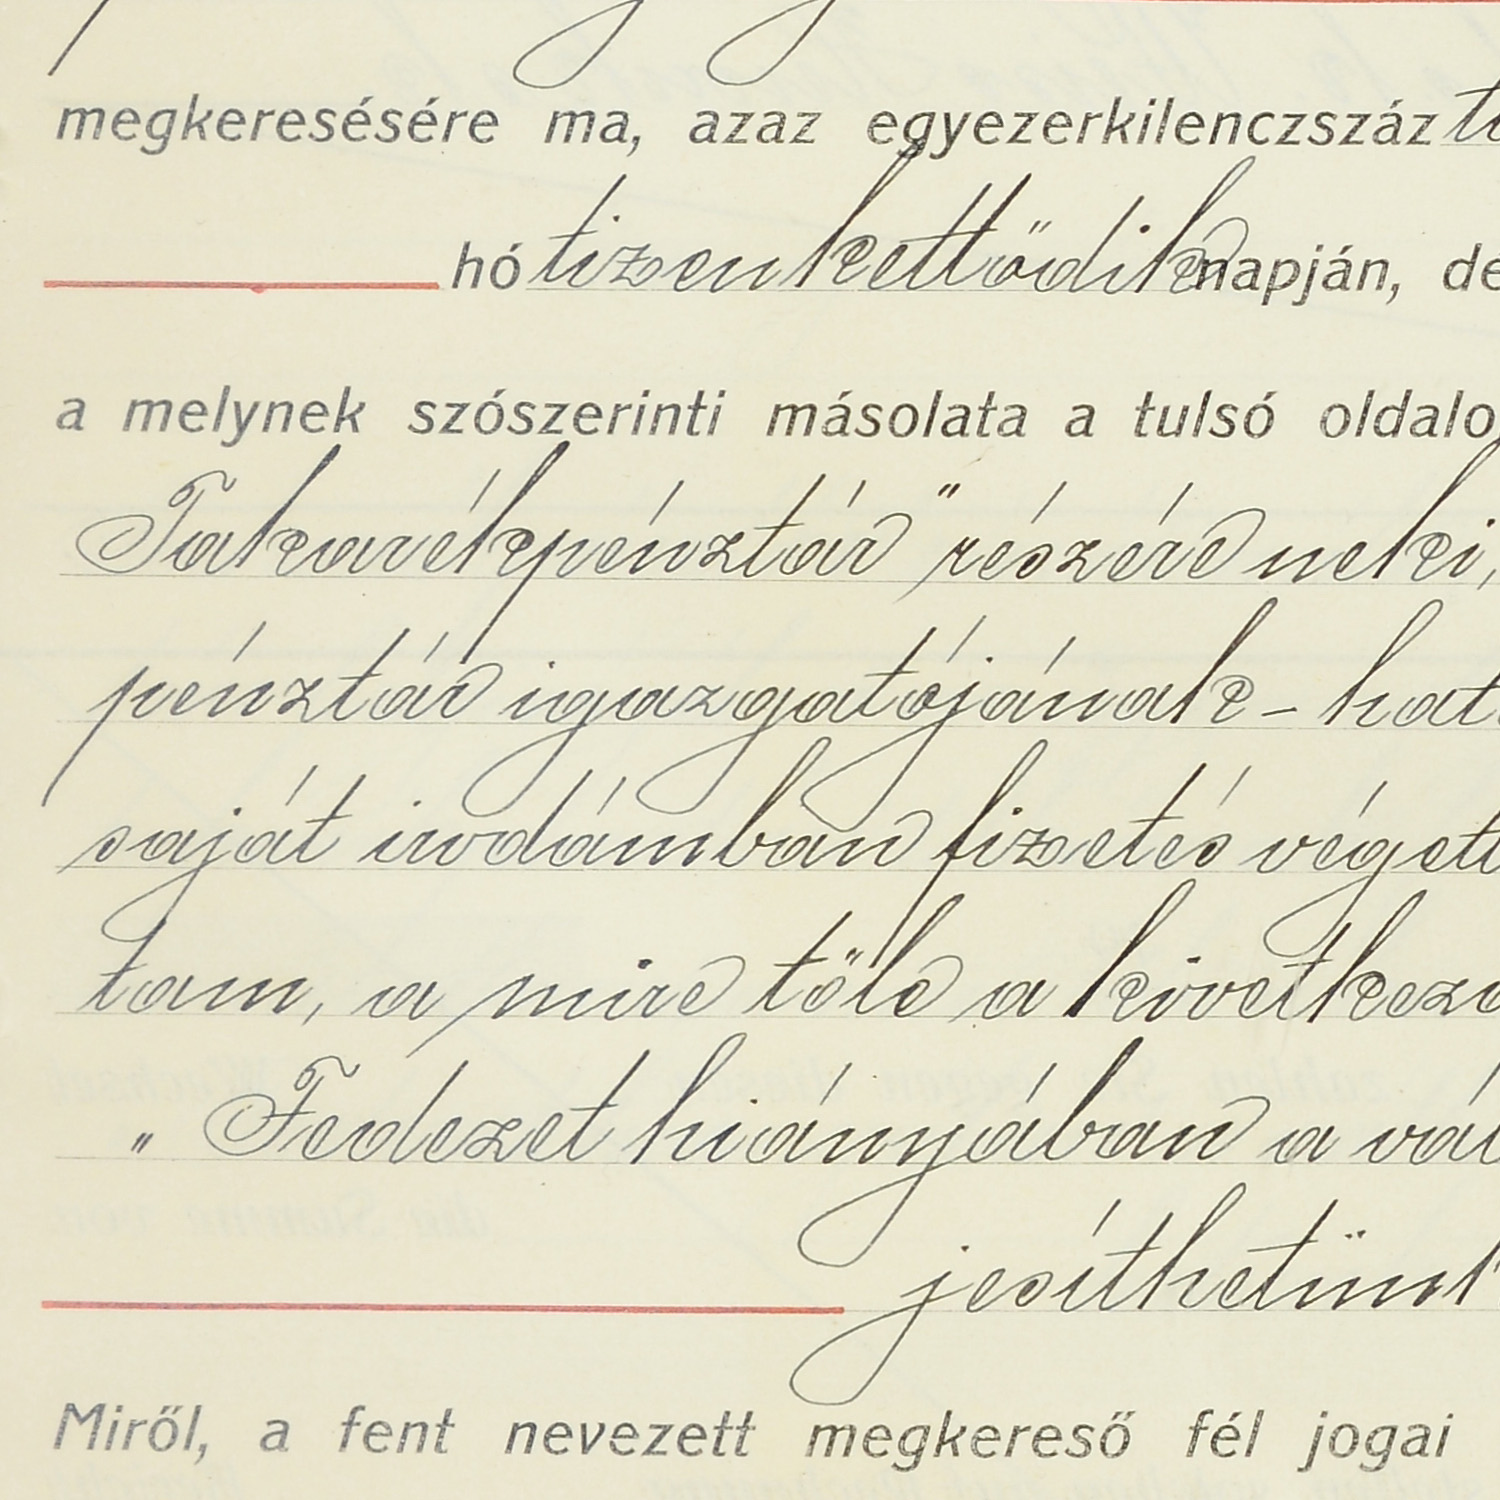 megkeresésére ma, azaz egyezerkilenczszáz
hó tizenkettődik napján, de
a melynek szószerinti másolata a tulsó oldalo
Takarékpénztár" részére neki,
pénztár igazgatójának - hat
saját irodámban fizetés végett
tam, a mire tőle a következ
„ Fedezet hiányában a vál
jesíthetünk
Miről, a fent nevezett megkereső fél jogai